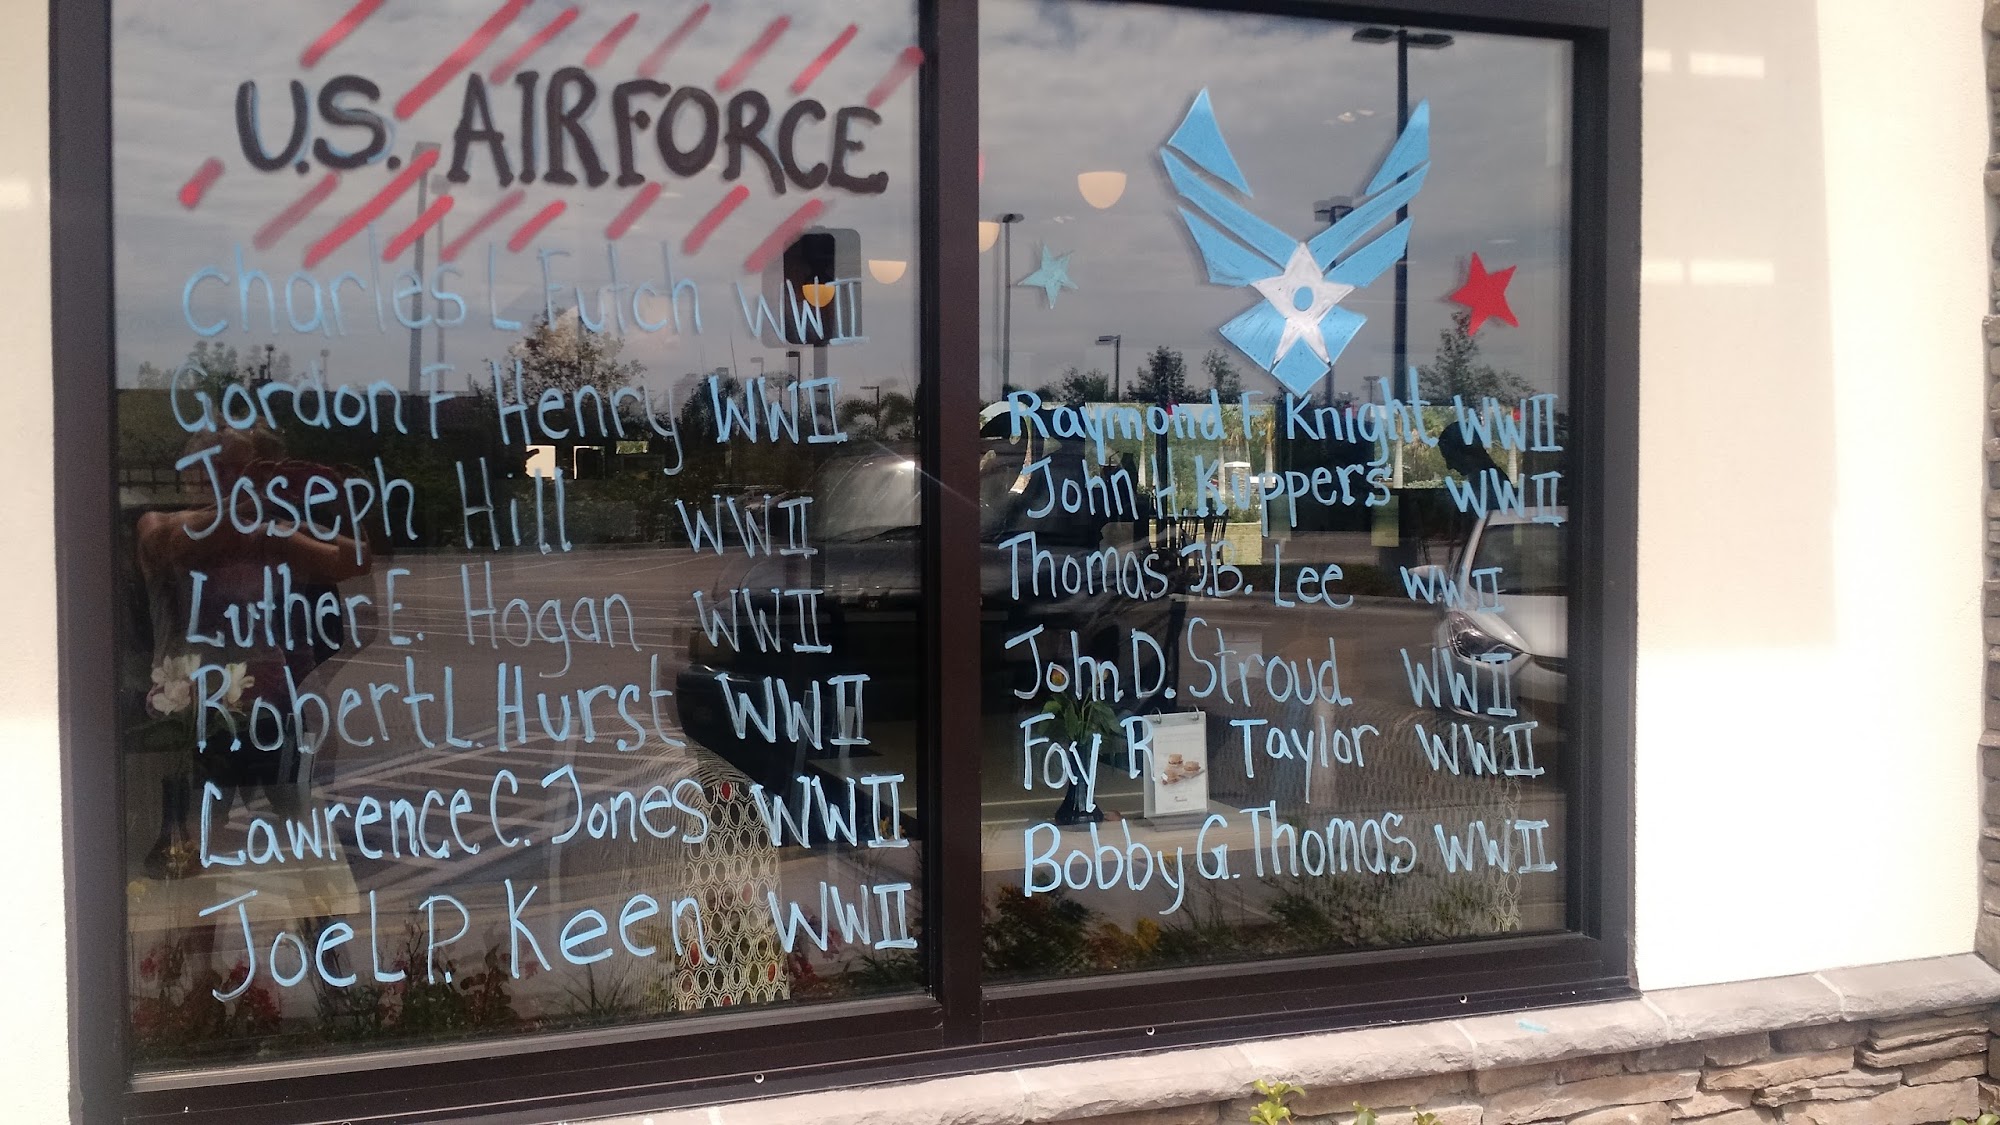 U.S. AIRFORCE
Charles L Futch WWII
Gordon F Henry WWII
Joseph Hill WWII
Luther E. Hogan WWII
Robert L. Hurst WWII
Lawrence C. Jones WWII
Joel P. Keen WWII
Raymond F. Knight WWII
John H. Kuppers WWII
Thomas J.B. Lee WWII
John D. Stroud WWII
Foy R. Taylor WWII
Bobby G. Thomas WWII